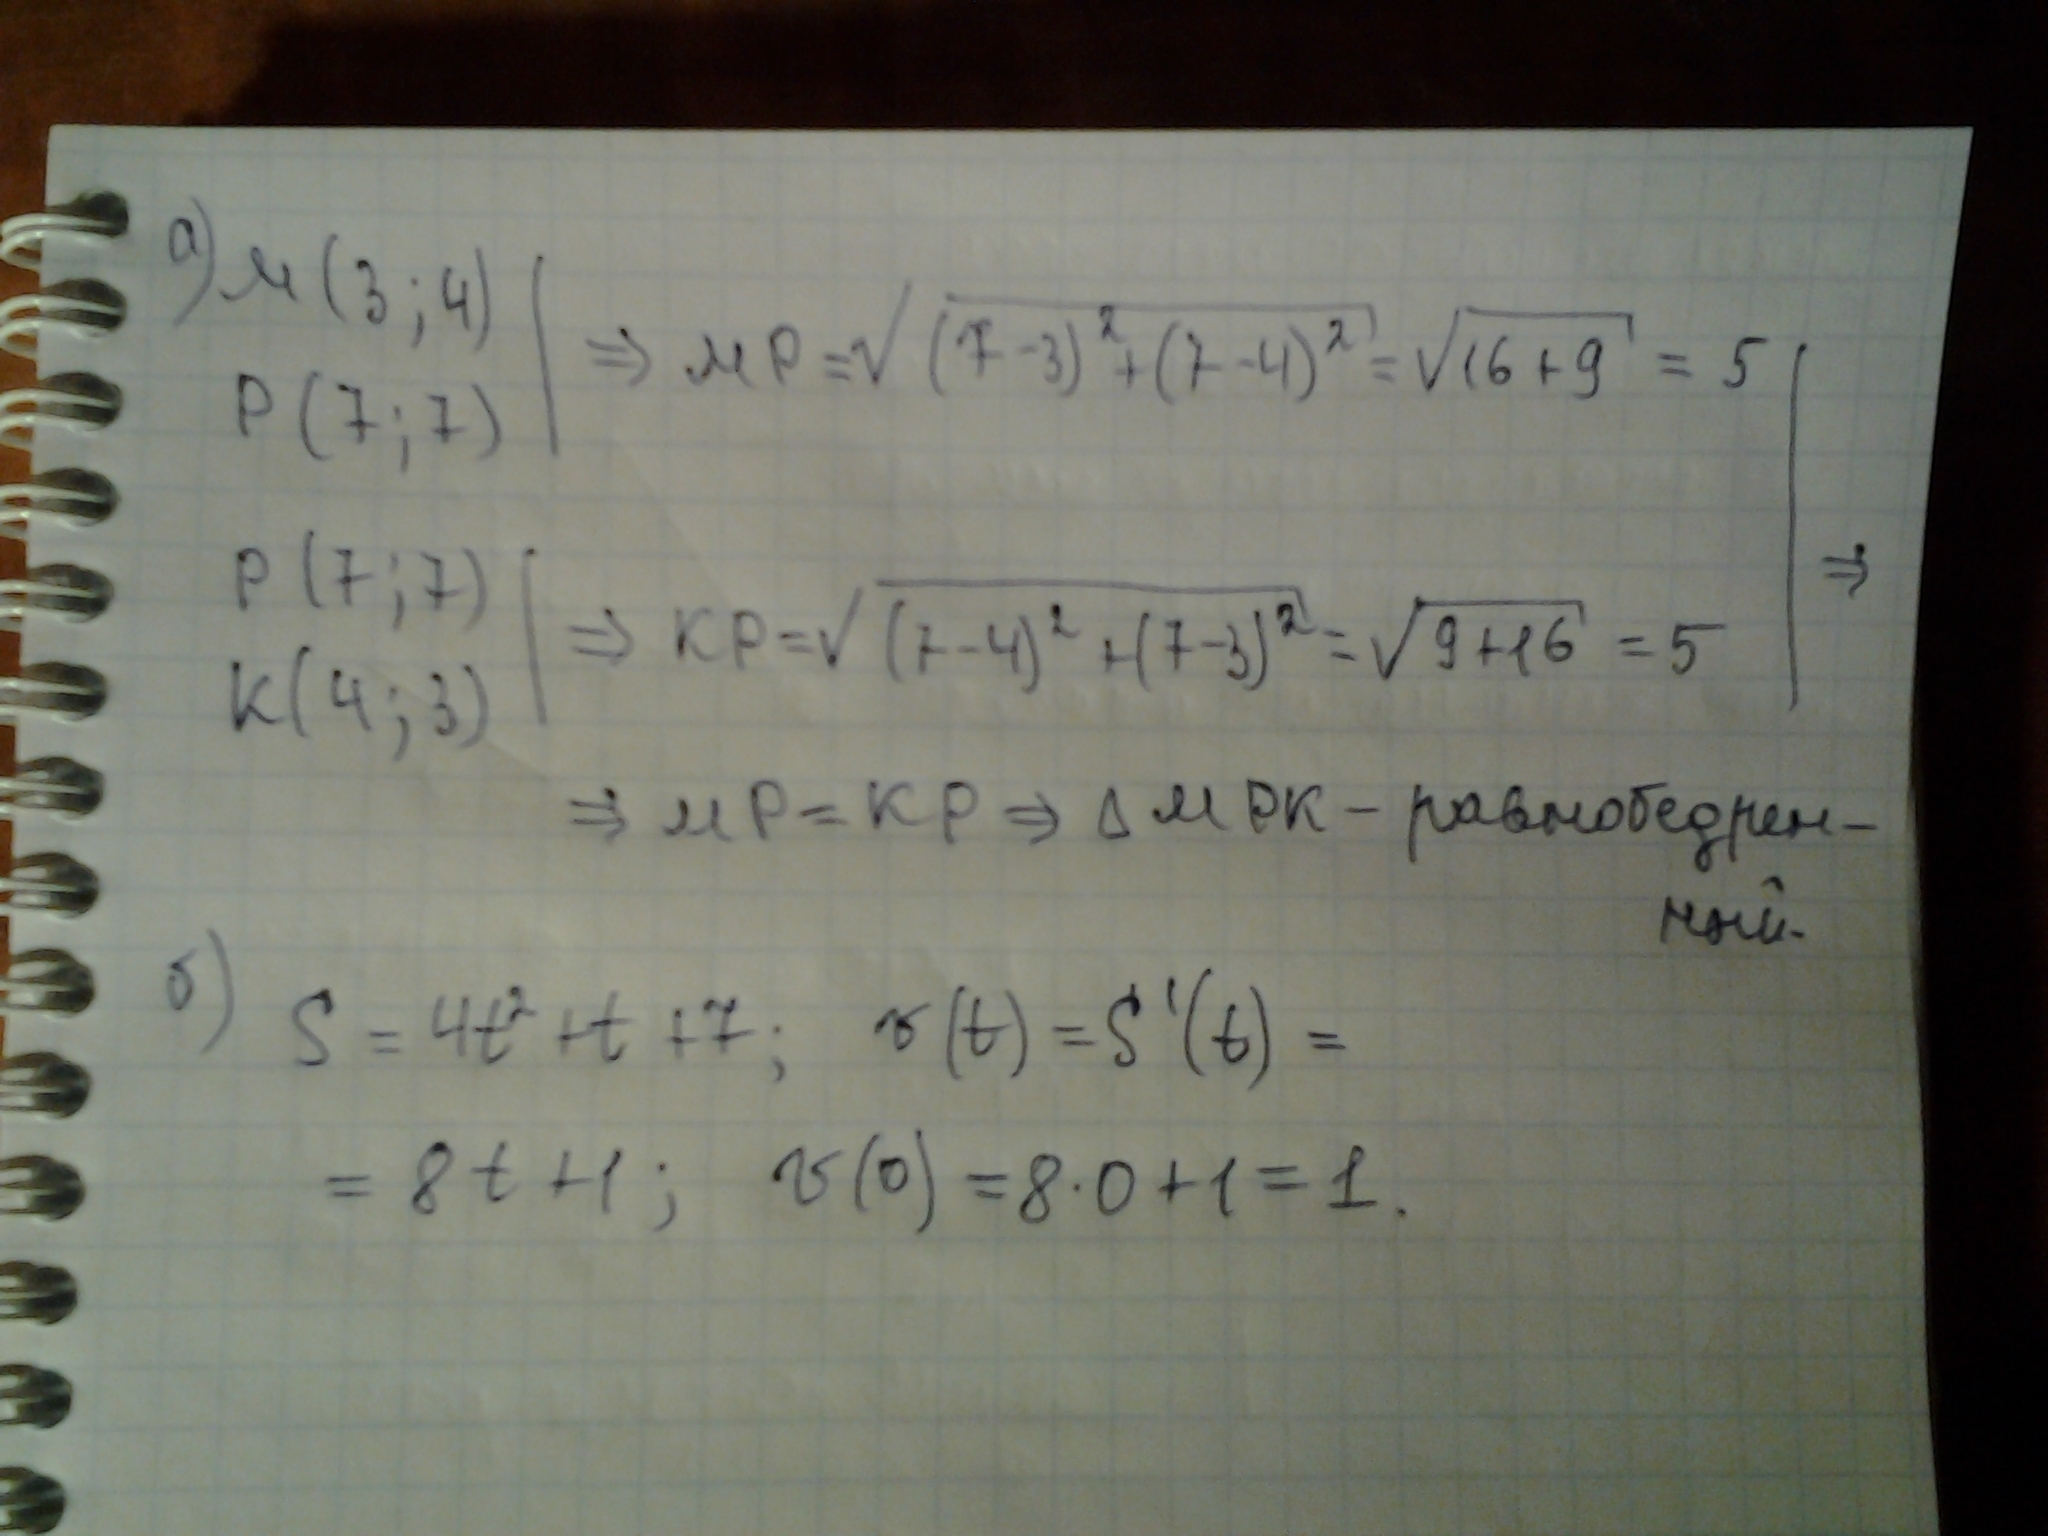 а) М(3;4)
Р(7;7)
⇒ МР=√((7-3)²+(7-4)²)=√(16+9) = 5
Р(7;7)
К(4;3)
⇒ КР=√((7-4)²+(7-3)²)=√(9+16) =5
⇒
⇒ МР=КР ⇒ Δ МРК – равнобедрен-
ный.
б) S = 4t²+t+7; v(t)=S'(t)=
= 8t+1; v(0)=8·0+1=1.